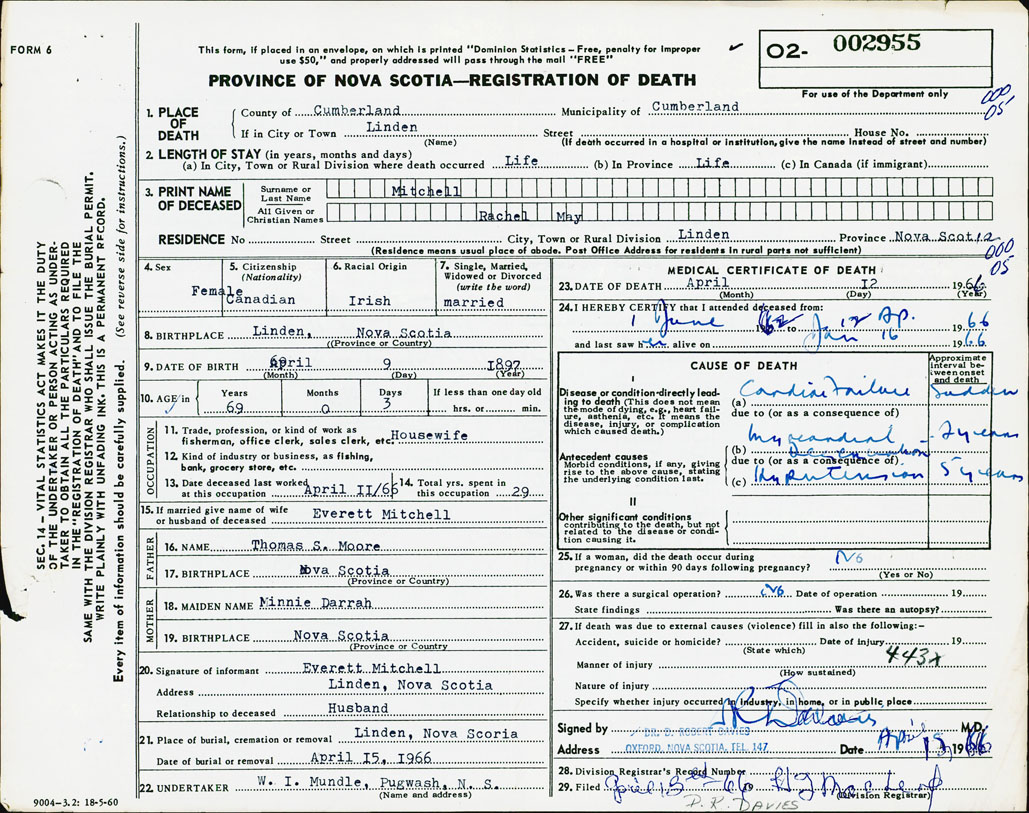 FORM 6
This form, if placed in an envelope, on which is printed "Dominion Statistics – Free, penalty for improper
use $50," and properly addressed will pass through the mail "FREE"
PROVINCE OF NOVA SCOTIA—REGISTRATION OF DEATH
O2- 002955
For use of the Department only
000
05
1. PLACE OF DEATH
County of Cumberland Municipality of Cumberland
If in City or Town Linden Street House No.
(Name) (If death occurred in a hospital or institution, give the name instead of street and number)
2. LENGTH OF STAY (in years, months and days)
(a) In City, Town or Rural Division where death occurred Life (b) In Province Life (c) In Canada (if immigrant)
3. PRINT NAME OF DECEASED
Surname or Last Name Mitchell
All Given or Christian Names Rachel May
RESIDENCE No Street City, Town or Rural Division Linden Province Nova Scotia
(Residence means usual place of abode. Post Office Address for residents in rural parts not sufficient)
000
05
4. Sex Female
5. Citizenship (Nationality) Canadian
6. Racial Origin Irish
7. Single, Married, Widowed or Divorced (write the word) married
8. BIRTHPLACE Linden, Nova Scotia
(Province or Country)
9. DATE OF BIRTH April 9 1897
(Month) (Day) (Year)
10. AGE in Years Months Days If less than one day old
69 0 3 hrs. or min.
OCCUPATION
11. Trade, profession, or kind of work as
fisherman, office clerk, sales clerk, etc. Housewife
12. Kind of industry or business, as fishing,
bank, grocery store, etc.
13. Date deceased last worked at this occupation April II/66
14. Total yrs. spent in this occupation 29
15. If married give name of wife
or husband of deceased Everett Mitchell
FATHER
16. NAME Thomas S. Moore
17. BIRTHPLACE Nova Scotia
(Province or Country)
MOTHER
18. MAIDEN NAME Minnie Darrah
19. BIRTHPLACE Nova Scotia
(Province or Country
20. Signature of informant Everett Mitchell
Address Linden, Nova Scotia
Relationship to deceased Husband
21. Place of burial, cremation or removal Linden, Nova Scoria
Date of burial or removal April I5, I966
22. UNDERTAKER W. I. Mundle, Pugwash, N. S.
(Name and address)
MEDICAL CERTIFICATE OF DEATH
23. DATE OF DEATH April I2 1966
(Month) (Day) (Year)
24. I HEREBY CERTIFY that I attended deceased from:
1 June 62 to Jan 12 Ap. 1966
and last saw her alive on 16 1966
CAUSE OF DEATH
Approximate interval between onset and death
I
Disease or condition directly leading to death (This does not mean the mode of dying, e.g., heart failure, asthenia, etc. It means the disease, injury, or complication which caused death.)
(a) Cardiac Failure Sudden
due to (or as a consequence of)
Antecedent causes
Morbid conditions, if any, giving rise to the above cause, stating the underlying condition last.
(b) Myocardial – 2 years
due to (or as a consequence of)
(c) Hypertension 5 years
II
Other significant conditions
contributing to the death, but not related to the disease or condition causing it.
25. If a woman, did the death occur during
pregnancy or within 90 days following pregnancy? No
(Yes or No)
26. Was there a surgical operation? No Date of operation 19
State findings Was there an autopsy?
27. If death was due to external causes (violence) fill in also the following:–
Accident, suicide or homicide? Date of injury 19
(State which) 443x
Manner of injury
(How sustained)
Nature of injury
Specify whether injury occurred in industry, in home, or in public place
Signed by M.D.
DR. D. ROBERT DAVIES
Address OXFORD, NOVA SCOTIA, TEL. 147 Date April 15 1966
28. Division Registrar's Record Number
29. Filed 19
(Division Registrar)
D. K. DAVIES
SEC. 14 – VITAL STATISTICS ACT MAKES IT THE DUTY
OF THE UNDERTAKER OR PERSON ACTING AS UNDER-
TAKER TO OBTAIN ALL THE PARTICULARS REQUIRED
IN THE "REGISTRATION OF DEATH" AND TO FILE THE
SAME WITH THE DIVISION REGISTRAR WHO SHALL ISSUE THE BURIAL PERMIT.
WRITE PLAINLY WITH UNFADING INK. THIS IS A PERMANENT RECORD.
Every item of information should be carefully supplied. (See reverse side for instructions.)
9004–3.2: 18-5-60